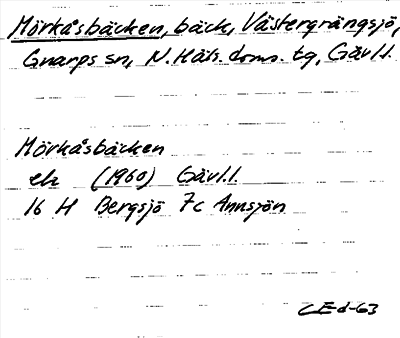 Mörkåsbäcken, bäck, Västergrängsjö,
Gnarps sn, N. Häls. doms. tg, Gävl.l.
Mörkåsbäcken
ek (1960) Gävl.l.
16 H Bergsjö 7c Annsjön
CEd-63